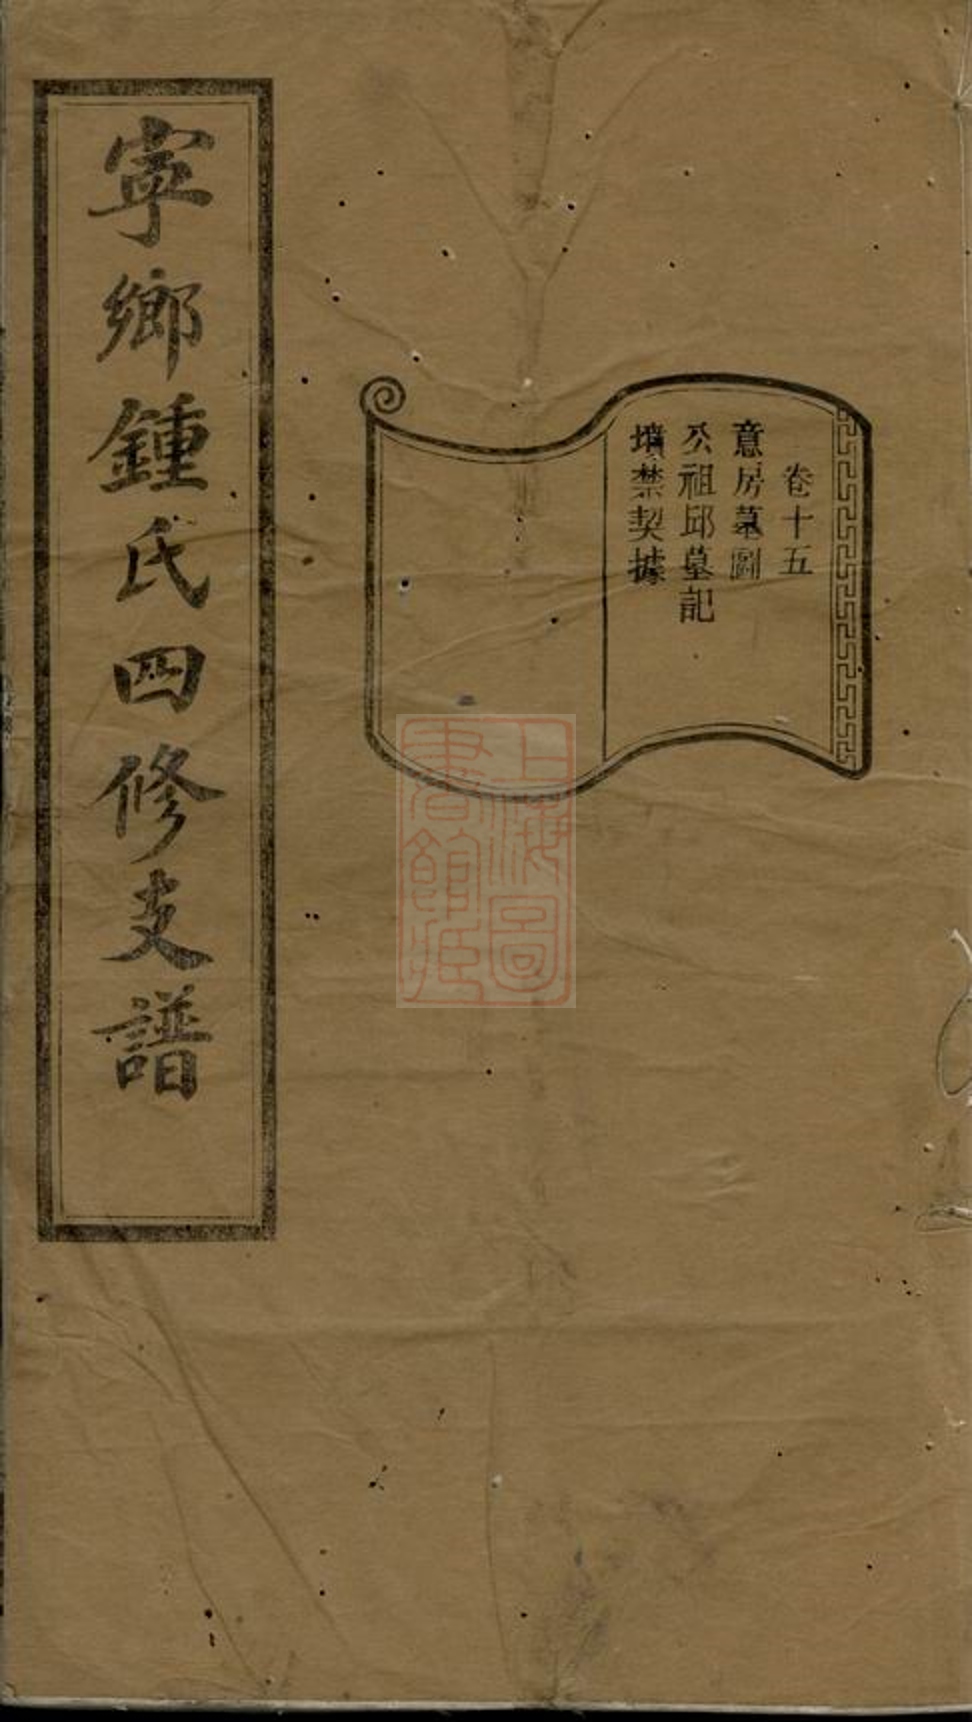 卷十五
意房墓圖
公祖邱墓記
墳禁契據
寧鄉鍾氏四修支譜
上海圖書館藏